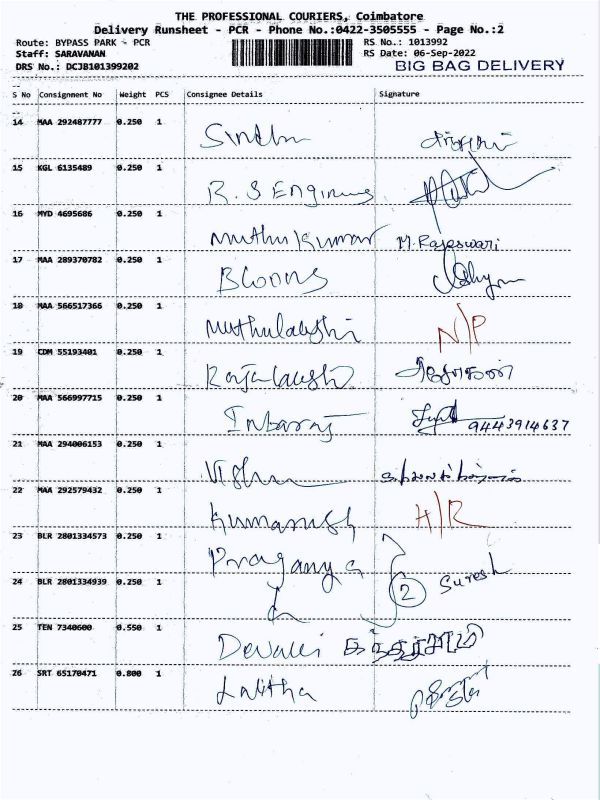 THE PROFESSIONAL COURIERS, Coimbatore
Delivery Runsheet - PCR - Phone No.:0422-3505555 - Page No.:2
Route: BYPASS PARK - PCR RS No.: 1013992
Staff: SARAVANAN RS Date: 06-Sep-2022
DRS No.: DCJB101399202 BIG BAG DELIVERY
S No Consignment No Weight PCS Consignee Details Signature
14 MAA 292487777 0.250 1 Sindhu
15 KGL 6135489 0.250 1 R.S Engineers
16 MYD 4695686 0.250 1 Muthu Kumar M. Rajeswari
17 MAA 289370782 0.250 1 Blooms
18 MAA 566517366 0.250 1 Muthulakshi N/P
19 CDM 55193401 0.250 1 Rajalakshi
20 MAA 566997715 0.250 1 Inbaraj 9443914637
21 MAA 294006153 0.250 1 Vishnu
22 MAA 292579432 0.250 1 H/R
23 BLR 2801334573 0.250 1 Suresh
24 BLR 2801334939 0.250 1 2
25 TEN 7340600 0.550 1
26 SRT 65170471 0.800 1 Lalitha